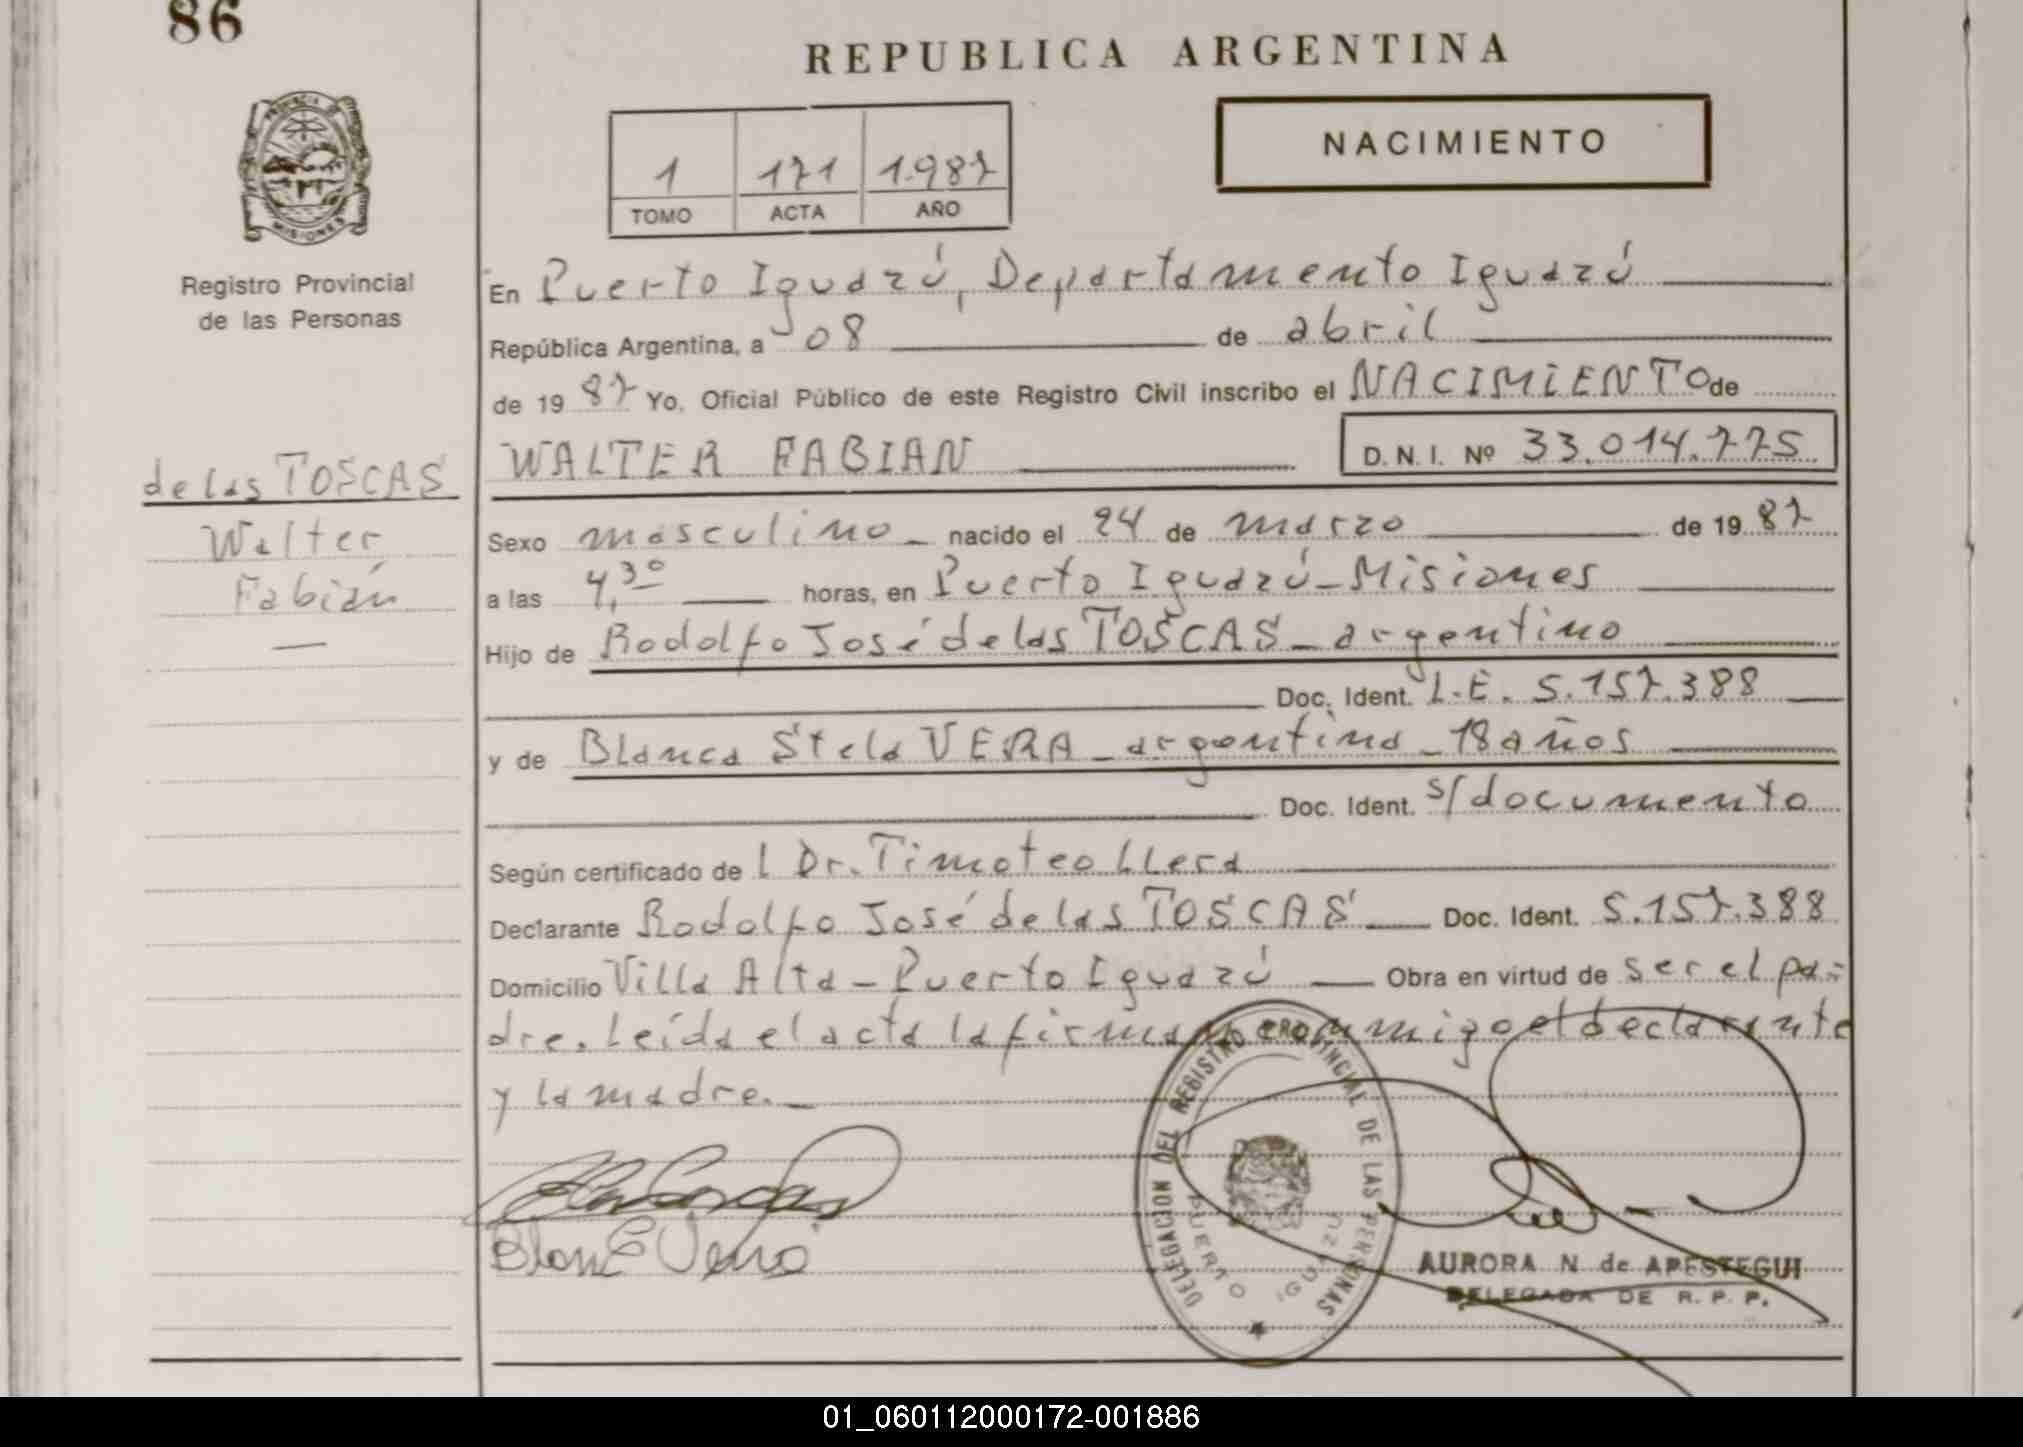 86
REPUBLICA ARGENTINA
NACIMIENTO
1 171 1.987
TOMO ACTA AÑO
PROVINCIA DE MISIONES
Registro Provincial
de las Personas
de las TOSCAS
Walter
Fabián
En Puerto Iguazú, Departamento Iguazú
República Argentina, a 08 de abril
de 19 87 Yo, Oficial Público de este Registro Civil inscribo el NACIMIENTO de
WALTER FABIAN D.N.I. Nº 33.014.775
Sexo masculino nacido el 24 de marzo de 19 87
a las 4,30 horas, en Puerto Iguazú - Misiones
Hijo de Rodolfo José de las TOSCAS - argentino
Doc. Ident. L.E. 5.157.388
y de Blanca Stela VERA - argentina - 18 años
Doc. Ident. s/documento
Según certificado de l Dr. Timoteo LLera
Declarante Rodolfo José de las TOSCAS Doc. Ident. 5.157.388
Domicilio Villa Alta - Puerto Iguazú Obra en virtud de ser el pa-
dre. Leída el acta la firman conmigo el declarante
y la madre.
DELEGACION DEL REGISTRO PROVINCIAL DE LAS PERSONAS
PUERTO IGUAZU
Vera
AURORA N de APESTEGUI
DELEGADA DE R. P. P.
01_060112000172-001886